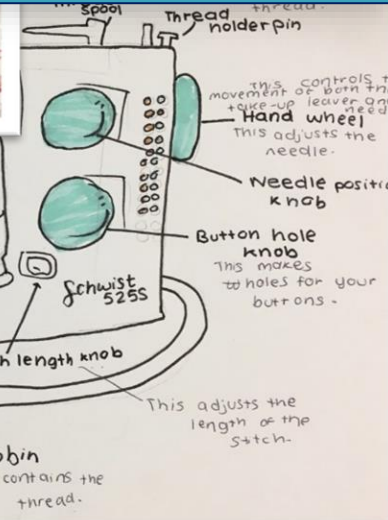 spool
thread.
Thread
holder pin
This controls t
movement of both th
take-up leaver an
need
Hand wheel
This adjusts the
needle.
Needle positi
knob
Button hole
knob
This makes
to holes for your
buttons.
Schwist
525S
h length knob
This adjusts the
length of the
Stitch.
obin
contains the
thread.